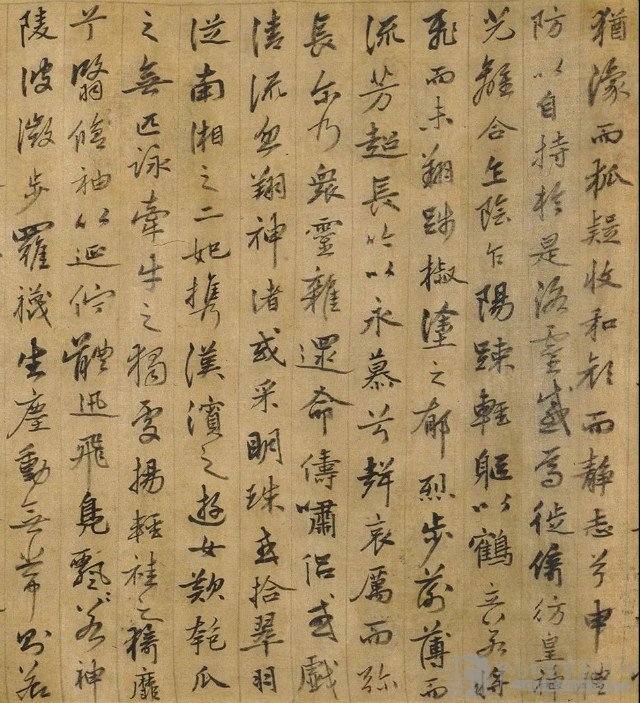 猶豫而狐疑收和顔而静志兮申禮
防以自持於是洛靈感焉徙倚彷皇神
光離合乍陰乍陽竦輕軀以鶴立若將
飛而未翔踐椒塗之郁烈步蘅薄而
流芳超長吟以永慕兮聲哀厲而弥
長尔乃衆靈雜遝命儔嘯侣或戲
清流或翔神渚或采明珠或拾翠羽
從南湘之二妃攜漢濱之游女歎匏瓜
之無匹詠牽牛之獨處揚輕袿之猗靡
兮翳脩袖以延佇體迅飛鳧飄若神
陵波微步羅襪生塵動無常則若